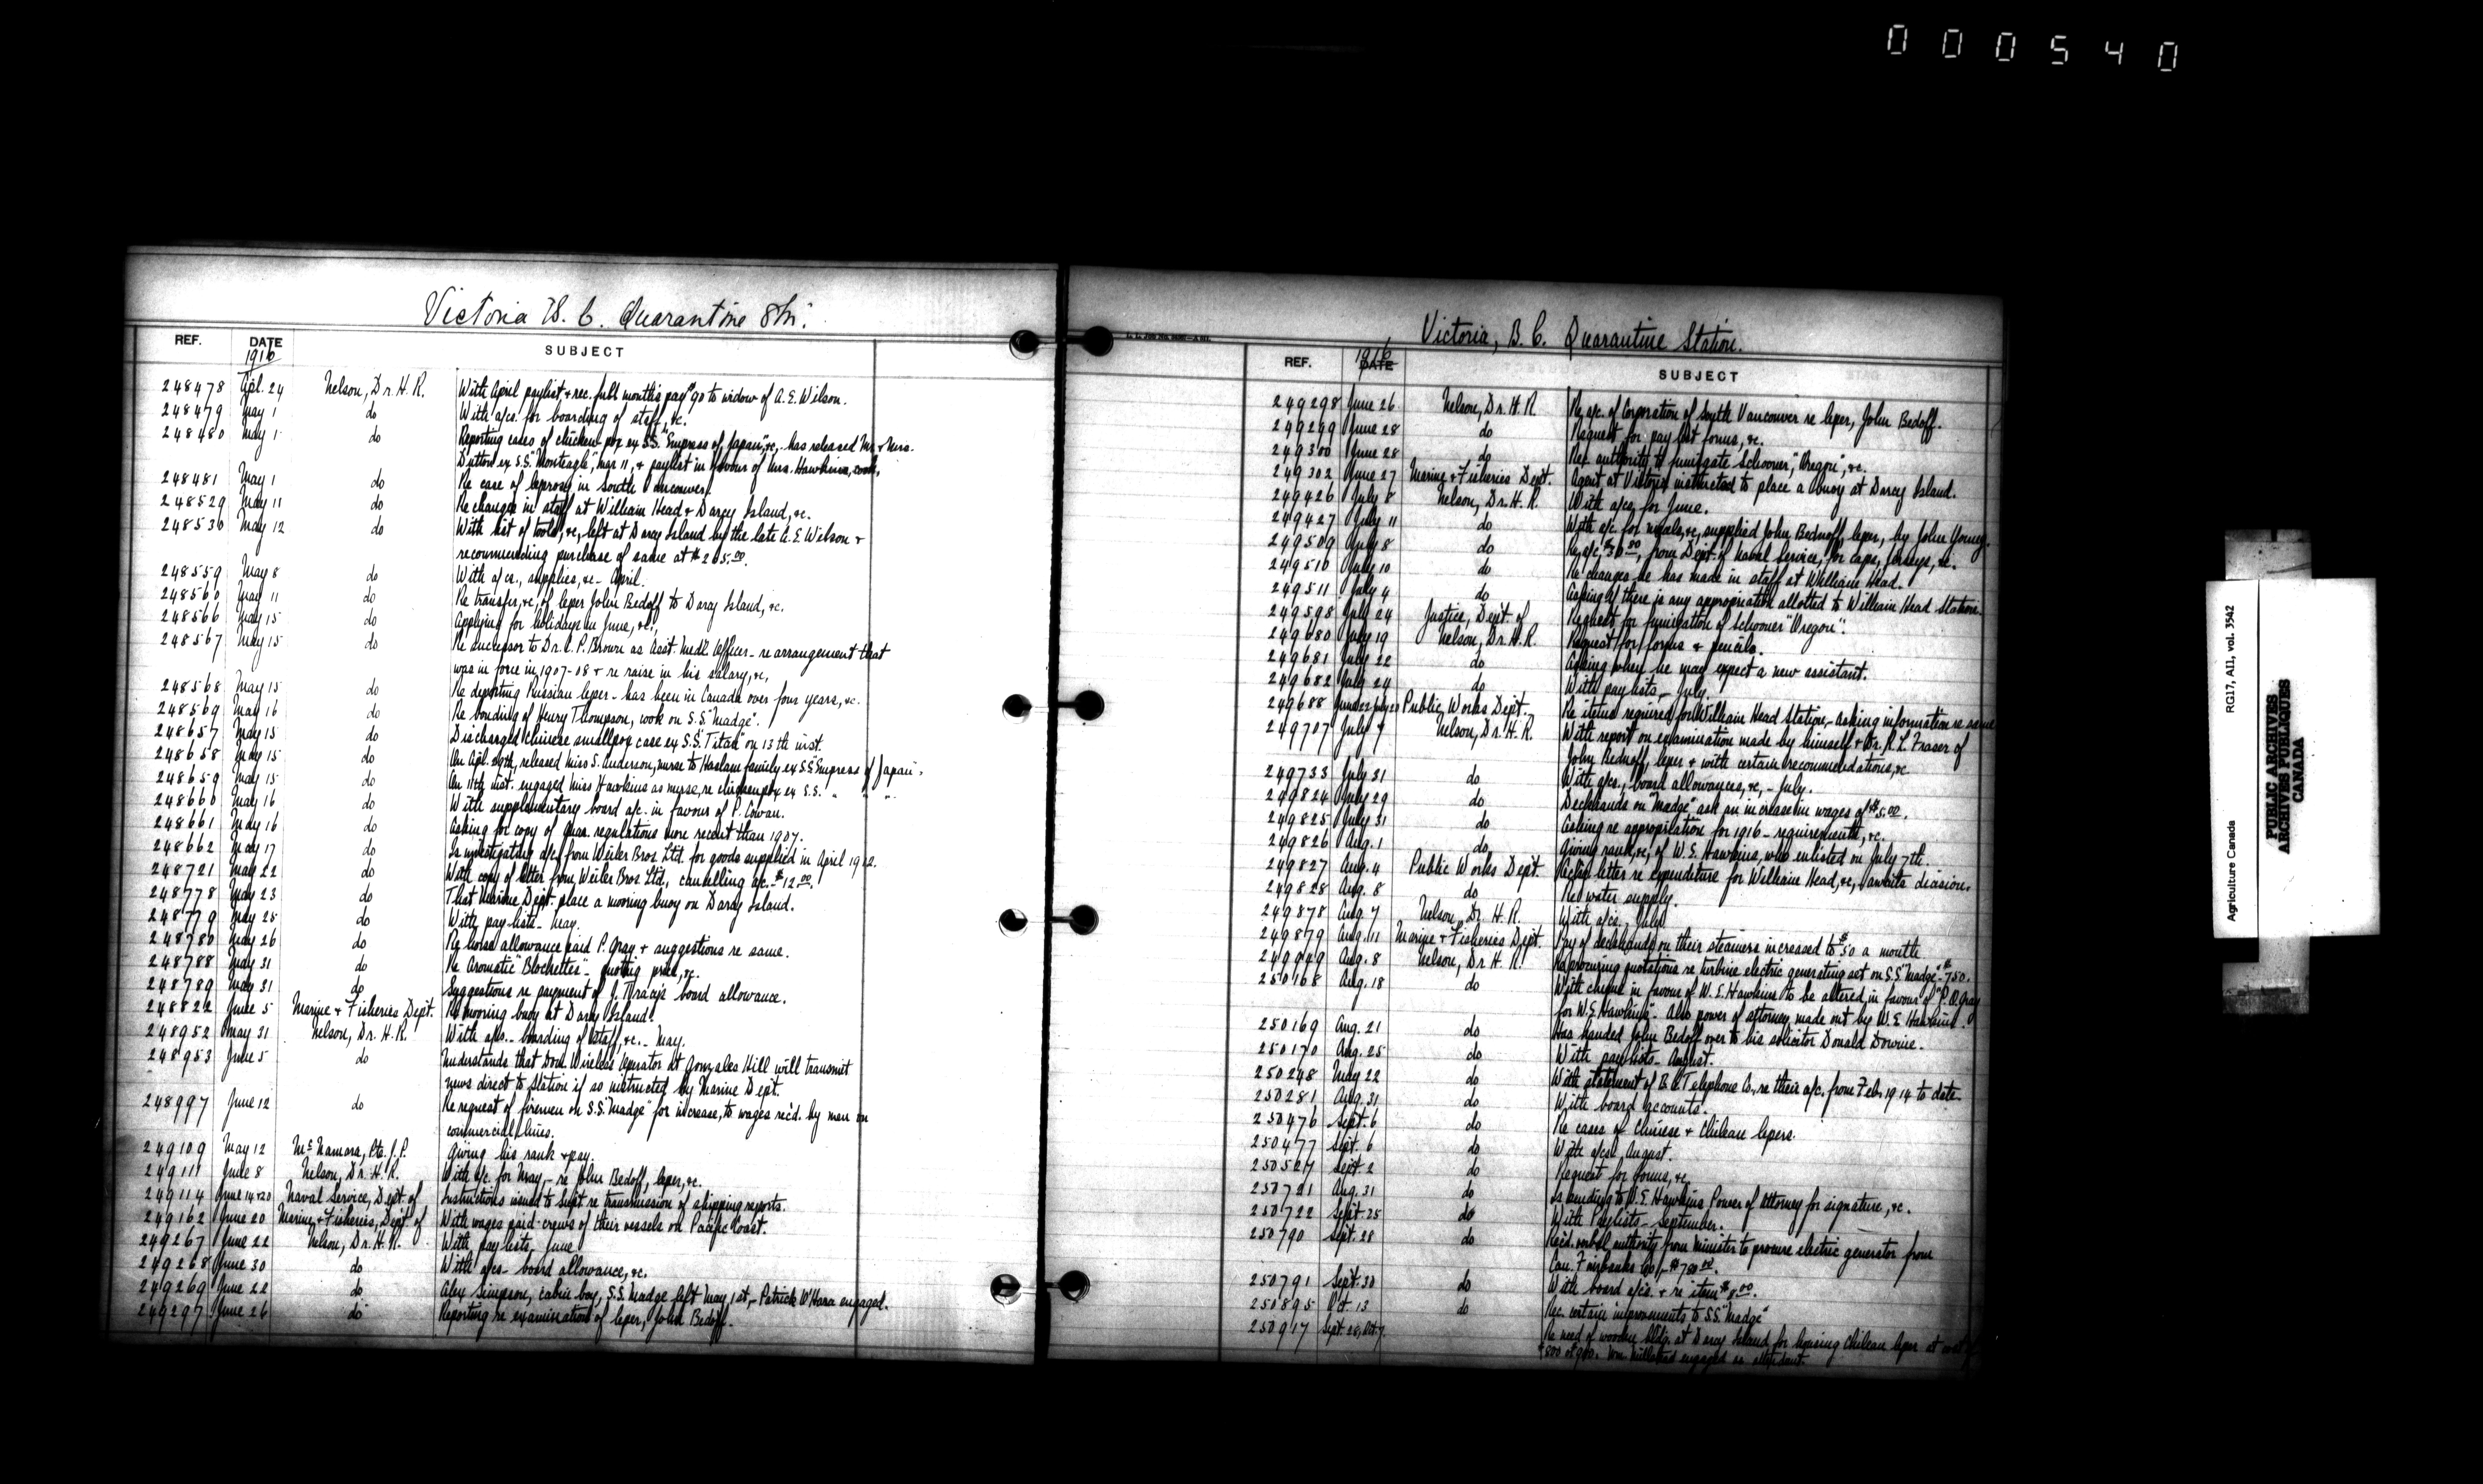 000540
Victoria B. C. Quarantine Stn.
REF. DATE SUBJECT
1916
248478 Apl. 24 Nelson, Dr. H. R. With April paylist & rec. full month's pay go to widow of A. E. Wilson.
248479 May 1 do With a/cs. for boarding of staff, &c.
248480 May 1 do Reporting cases of chicken-pox ex S.S. "Empress of Japan", &c, - has released Mr. & Mrs.
Dutton ex S.S. "Monteagle", Mar 11, & paylist in favour of Mrs. Hawkins, cook.
248481 May 1 do Re case of leprosy in South Vancouver.
248529 May 11 do Re changes in staff at William Head & Darcy Island, &c.
248530 May 12 do With list of tools, &c, left at Darcy Island by the late A. E. Wilson &
recommending purchase of same at $265.00.
248559 May 8 do With a/cs., supplies, &c - April.
248560 May 11 do Re transfer, &c, of leper John Bedoff to Darcy Island, &c.
248566 May 15 do Applying for holidays in June, &c.,
248567 May 15 do Re successor to Dr. C. P. Brown as Asst. Medl. Officer - re arrangement that
was in force in 1907-08 & re raise in his salary, &c,
248568 May 15 do Re deporting Russian leper - has been in Canada over four years, &c.
248569 May 16 do Re bonding of Henry Thompson, cook on S.S. "Madge".
248657 May 15 do Discharged Chinese smallpox case ex S.S. "Titan" on 13th inst.
248658 May 15 do On Apl. 29th, released Miss S. Anderson, nurse to Haslam family ex S.S. "Empress of Japan".
248659 May 15 do On 11th inst. engaged Miss Hawkins as nurse, re chickenpox ex S.S. " " "
248660 May 16 do With supplementary board a/c. in favour of P. Cowan.
248661 May 16 do Asking for copy of Quar. regulations more recent than 1907.
248662 May 17 do Is investigating a/c. from Weiler Bros Ltd. for goods supplied in April 1912.
248721 May 22 do With copy of letter from Weiler Bros Ltd., cancelling a/c. - $12.00.
248778 May 23 do That Marine Dept. place a mooring buoy on Darcy Island.
248779 May 25 do With pay-lists - May.
248780 May 26 do Re horse allowance paid P. Gray & suggestions re same.
248788 May 31 do Re Aromatic "Blochettes" - quoting price, &c.
248789 May 31 do Suggestions re payment of J. Tracy's board allowance.
248822 June 5 Marine & Fisheries Dept. Re mooring buoy at Darcy Island.
248952 May 31 Nelson, Dr. H. R. With a/cs. - boarding of staff, &c. - May.
248953 June 5 do Understands that Dom. Wireless Operator at Gonzales Hill will transmit
news direct to Station if so instructed by Marine Dept.
248997 June 12 do Re request of firemen on S.S. "Madge" for increase, to wages rec'd. by men on
commercial lines.
249109 May 12 McNamara, Pte. J. P. Giving his rank & pay.
249111 June 8 Nelson, Dr. H. R. With a/c. for May, - re John Bedoff, leper, &c.
249114 June 14 & 20 Naval Service, Dept. of Instructions issued to Supt. re transmission of shipping reports.
249162 June 20 Marine & Fisheries, Dept. of With wages paid crews of their vessels on Pacific Coast.
249267 June 22 Nelson, Dr. H. R. With pay lists, June
249268 June 30 do With a/cs - board allowance, &c.
249269 June 22 do Alex Simpson, cabin boy, S.S. Madge left May 1st, - Patrick O'Hara engaged.
249297 June 26 do Reporting re examination of leper, John Bedoff.
Victoria, B. C. Quarantine Station.
REF. DATE SUBJECT
1916
249298 June 26 Nelson, Dr. H. R Re a/c. of Corporation of South Vancouver re leper, John Bedoff.
249299 June 28 do Request for pay list forms, &c.
249300 June 28 do Re authority to fumigate Schooner, "Oregon", &c.
249302 June 27 Marine & Fisheries Dept. Agent at Victoria instructed to place a buoy at Darcy Island.
249426 July 8 Nelson, Dr. H. R. With a/cs. for June.
249427 July 11 do With a/c. for meals, &c, supplied John Bednoff, leper, by John
249509 July 8 do Re a/c, from Dept. of Naval Service, for caps, jerseys, &c.
249510 July 10 do Re changes he has made in staff at William Head.
249511 July 4 do Asking if there is any appropriation allotted to William Head Station.
249598 July 24 Justice, Dept. of Request for fumigation of Schooner "Oregon".
249680 July 19 Nelson, Dr. H. R. Request for forms & pencils.
249681 July 22 do Asking when he may expect a new assistant.
249682 July 24 do With pay lists, - July.
249688 June 22 July 20 Public Works Dept. Re items required for William Head Station, - asking information re same
249707 July 7 Nelson, Dr. H. R. With report on examination made by himself & Dr. R. L. Fraser of
John Bednoff, leper & with certain recommendations, &c.
249733 July 31 do With a/cs., board allowances, &c, - July.
249824 July 29 do Deckhands on "Madge" ask an increase in wages of $5.00.
249825 July 31 do Asking re appropriation for 1916 - requirements, &c.
249826 Aug. 1 do Giving rank, &c, of W. E. Hawkins, who enlisted on July 7th.
249827 Aug. 4 Public Works Dept. letter re expenditure for William Head, &c, awaits decision.
249828 Aug. 8 do Re water supply.
249878 Aug. 7 Nelson, Dr. H. R. With a/cs., July
249879 Aug. 11 Marine & Fisheries Dept. Pay of deckhands on their steamers increased to $50 a month
249949 Aug. 8 Nelson, Dr. H. R. Re procuring quotations re turbine electric generating set on S.S. "Madge" - $750.
250168 Aug. 18 do With cheque in favour of W. E. Hawkins to be altered, in favour of "P. O. Gray
for W. E. Hawkins". Also power of attorney made out by W. E. Hawkins.
250169 Aug. 21 do Has handed John Bedoff over to his solicitor Donald Downie.
250170 Aug. 25 do With paylists - August.
250248 May 22 do With statement of B. C. Telephone Co., re their a/c. from Feb. 1914 to date.
250281 Aug. 31 do With board accounts.
250476 Sept. 6 do Re cases of Chinese & Chilean lepers.
250477 Sept. 6 do With a/cs, August.
250527 Sept. 2 do Request for forms, &c.
250721 Aug. 31 do Is sending to W. E. Hawkins Power of Attorney for signature, &c.
250722 Sept. 25 do With Paylists - September.
250790 Sept. 28 do Rec'd. verbal authority from Minister to procure electric generator from
Can. Fairbanks Co., - $750.00.
250791 Sept. 30 do With board a/cs. & re item $8.00.
250895 Oct. 13 do Rec. certain improvements to S.S. "Madge"
250917 Sept. 28, Oct 7. Re need of wooden bldg. at Darcy Island for housing Chilean leper at cost of
$800 or $900. engaged as attendant.
Agriculture Canada RG17, AII, vol. 3542
PUBLIC ARCHIVES
ARCHIVES PUBLIQUES
CANADA